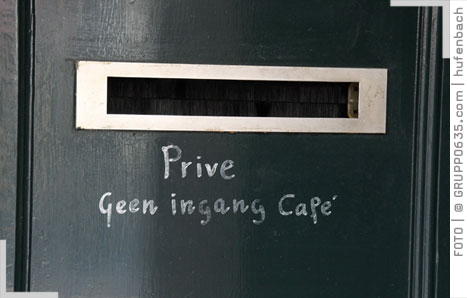 Prive
Geen ingang Café
FOTO | © GRUPPO635.com | hufenbach